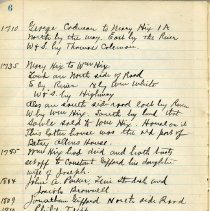 6
1710 George Codman to Mary Hix 1 A
North by the way. East by the River
W & S. by Thomas Coleman.
1735 Mary Hix to Wm Hix
Land on North side of Road
E by River N by Wm White
W & S by Highway
Also on south side road East by River
W by Wm Hix South by land that
sold to Wm Hix. Homestead in
this latter house was the old part of
Betsey Allens House.
1785 Wm Hix had died and both lots
to Constant Gifford his daughter
wife of Joseph.
1804 John A
Lincoln Brownell
1809 Jonathan Gifford North side Road